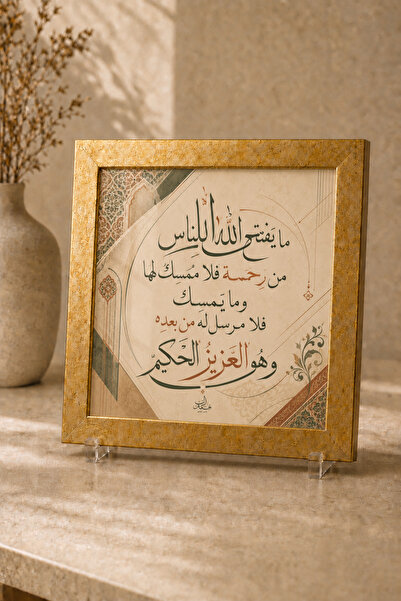 ما يفتح الله للناس
من رحمة فلا ممسك لها
وما يمسك
فلا مرسل له من بعده
وهو العزيز الحكيم